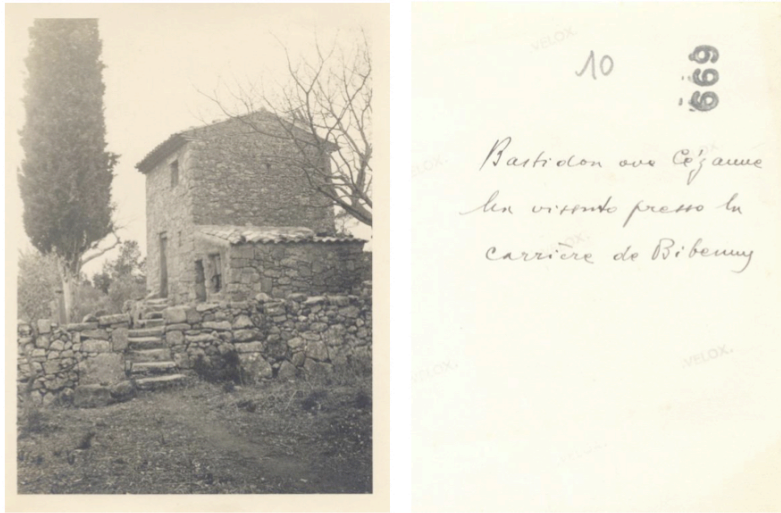 VELOX.
10
669
Bastidon ove Cézanne
ha vissuto presso la
carrière de Bibemus
VELOX.
VELOX.